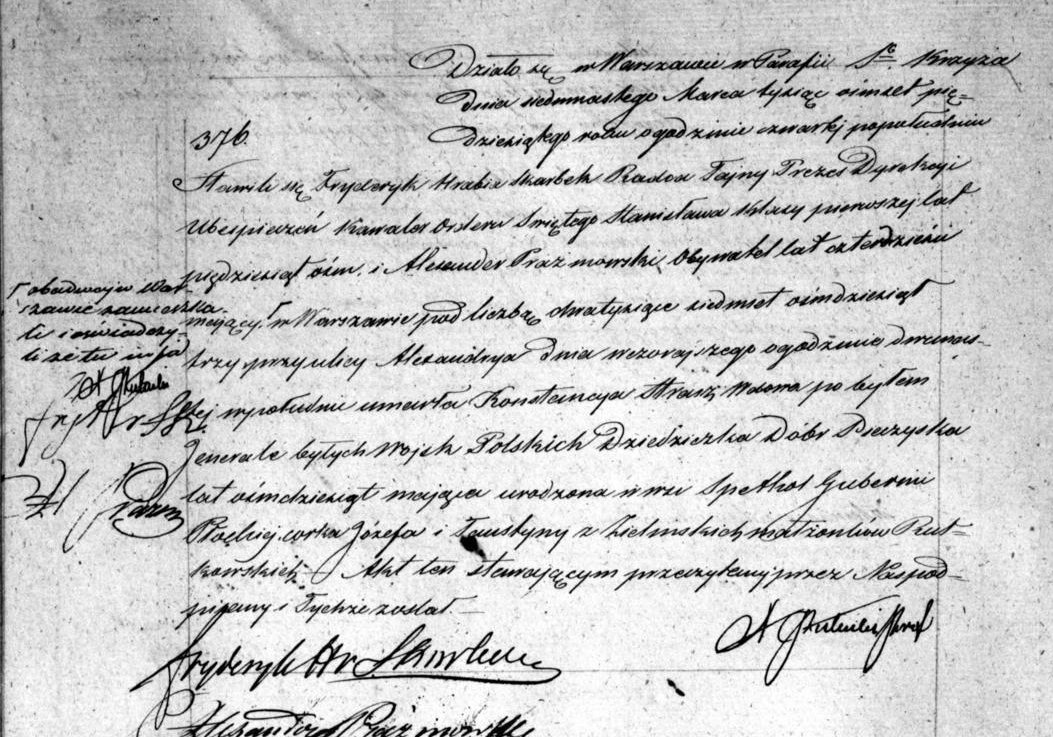 Działo się w Warszawie w Parafii Sgo Krzyża
dnia siedmnastego Marca tysiąc ośmset pię=
376.
dziesiątego roku o godzinie czwartej popołudniu
Stawili się Fryderyk Hrabia Skarbek Radca Tajny Prezes Dyrekcyi
Ubespieczeń Kawaler Orderu Świętego Stanisława klassy pierwszej lat
pięćdziesiąt ośm. i Alexander Prażmowski, Obywatel lat czterdzieści
mający, w Warszawie pod liczbą dwatysiące siedmset ośmdziesiąt
trzy przy ulicy Alexandrya dnia wczorajszego o godzinie dwunas-
tej w południe umarła Konstancya Wdowa po byłem
Jenerale byłych Wojsk Polskich Dziedziczka Dóbr
lat ośmdziesiąt mająca urodzona w wsi Gubernii
Płockiej, córka Józefa i Faustyny z Zielinskich małżonków Rut=
kowskich. Akt ten stawającym przeczytany przez Nas pod=
pisany i Tychże został.
obadwaj w War
szawie zamieszka
li i oświadczy
li że tu
Fryd Hr Sk
Fryderyk Hr Skarbek
Alexander Prażmowski